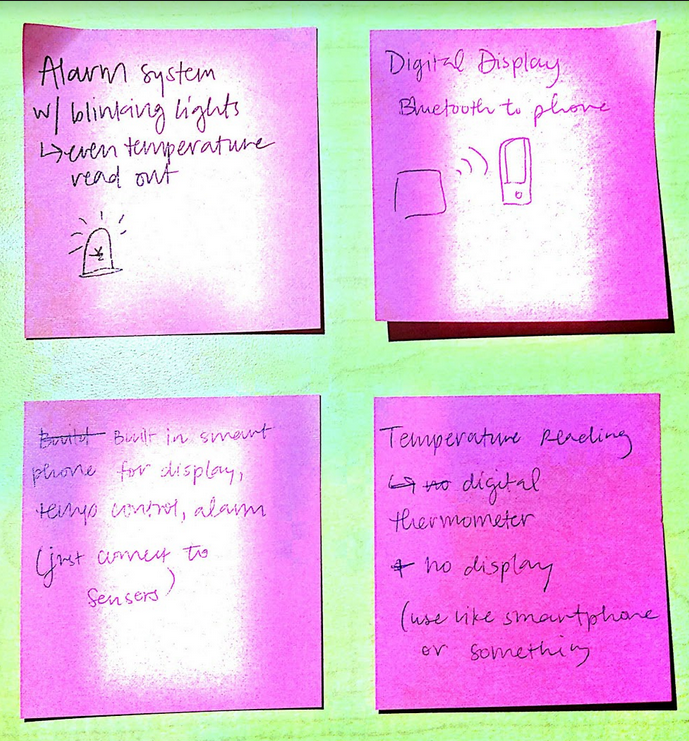 Alarm system
w/ blinking lights
↳ even temperature
read out
Digital Display
Bluetooth to phone
Build Built in smart
phone for display,
temp control, alarm
(just connect to
sensers)
Temperature Reading
↳ no digital
thermometer
+ no display
(use like smartphone
or something